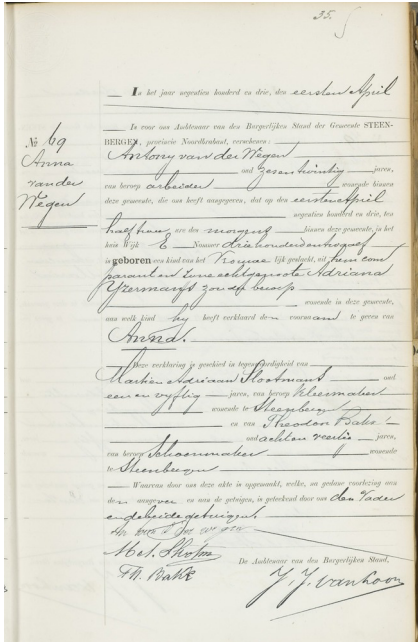 35.
In het jaar negentien honderd en drie, den eersten April
Is voor ons Ambtenaar van den Burgerlijken Stand der Gemeente STEEN-
BERGEN, provincie Noordbrabant, verschenen:
Antony van der Wegen
oud zesendertig jaren,
van beroep arbeider wonende binnen
deze gemeente, die ons heeft aangegeven, dat op den eersten April
negentien honderd en drie, ten
half twee ure des morgens binnen deze gemeente, in het
huis Wijk E Nummer driehonderd
is geboren een kind van het Vrouwe lijk geslacht, uit hem com
parant en zijne echtgenoote Adriana
IJzermans zonder beroep
wonende in deze gemeente,
aan welk kind hij heeft verklaard den voornaam te geven van
Anna.
Deze verklaring is geschied in tegenwoordigheid van
Martien Adriaan Slootmans oud
een en vijftig jaren, van beroep
wonende te Steenbergen
en van Theodor Bakx
oud acht en veertig jaren,
van beroep Schoenmaker wonende
te Steenbergen
Waarvan door ons deze akte is opgemaakt, welke, na gedane voorlezing aan
den aangever en aan de getuigen, is geteekend door ons den Vader
en de beide getuigen.
De Ambtenaar van den Burgerlijken Stand,
J. J. van Loon
No 69
Anna
van der
Wegen